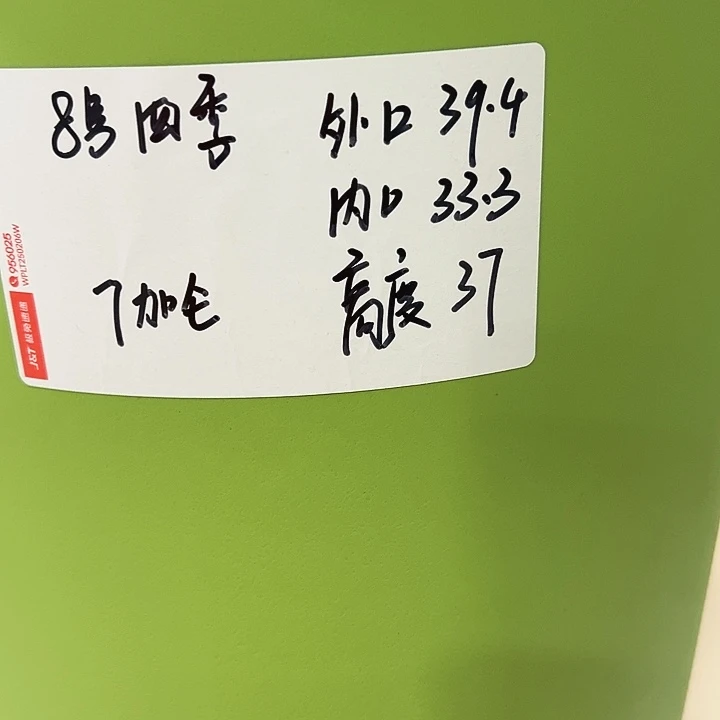 8号四季
外口 39.4
内口 33.3
7加仑
高度 37
J&T 极兔速递
956025
WPLT250206W